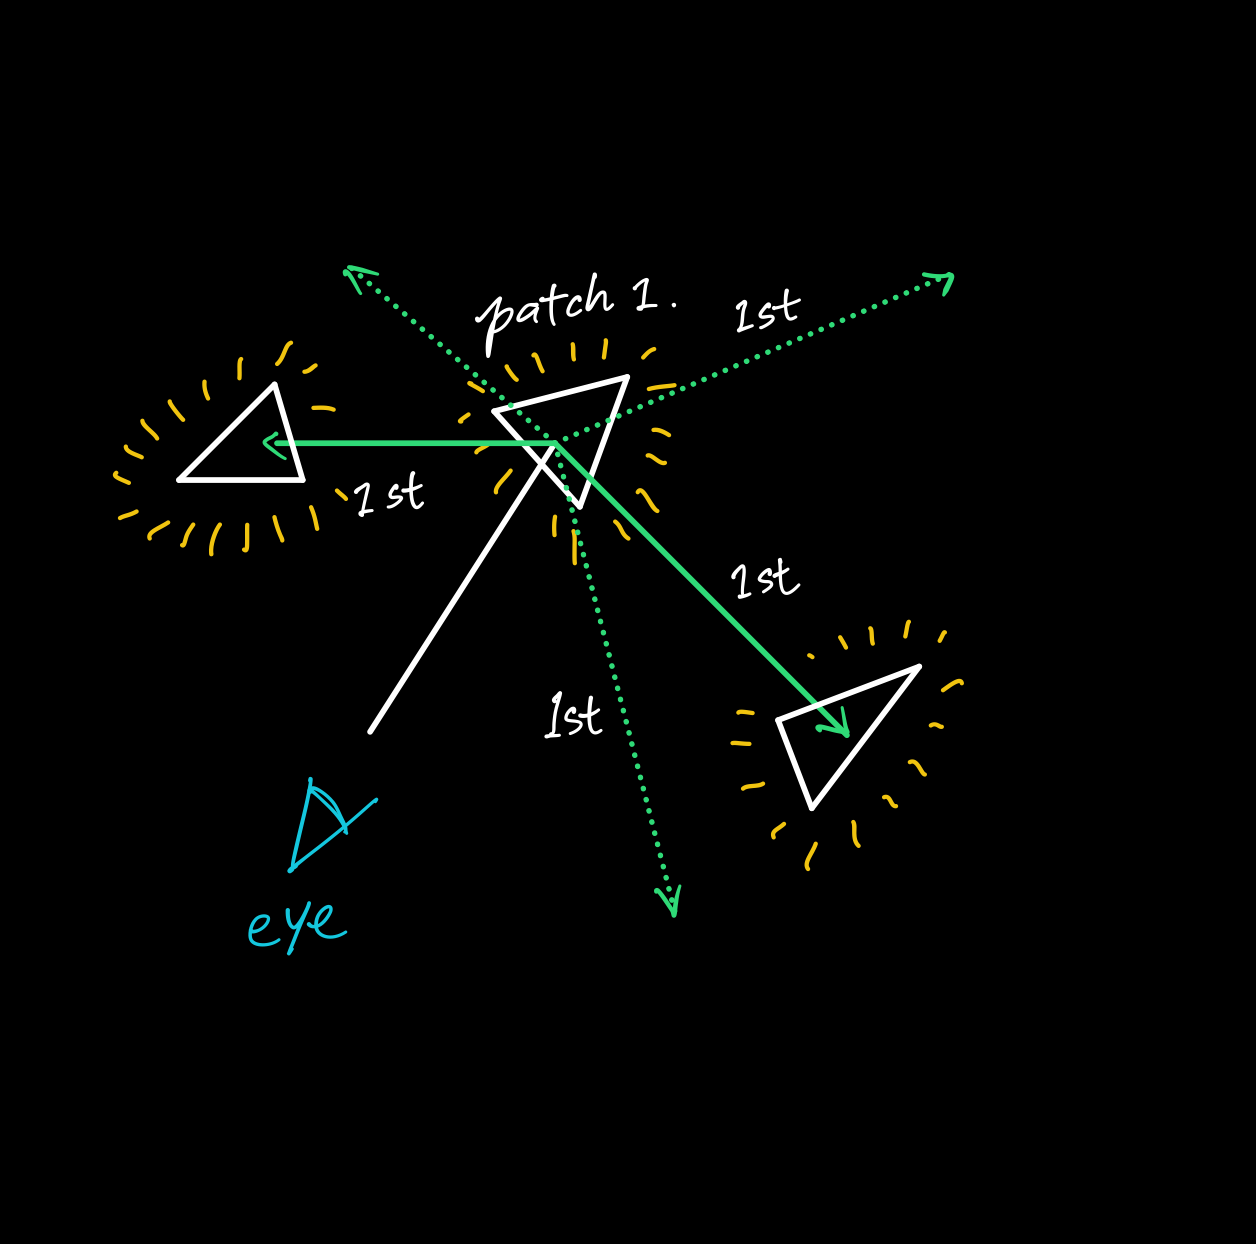 patch 1.
1st
1st
1st
1st
eye